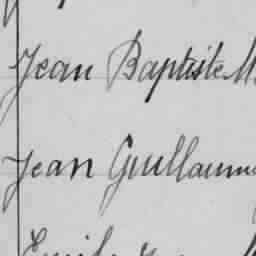 Jean Baptiste M
Jean Guillaume